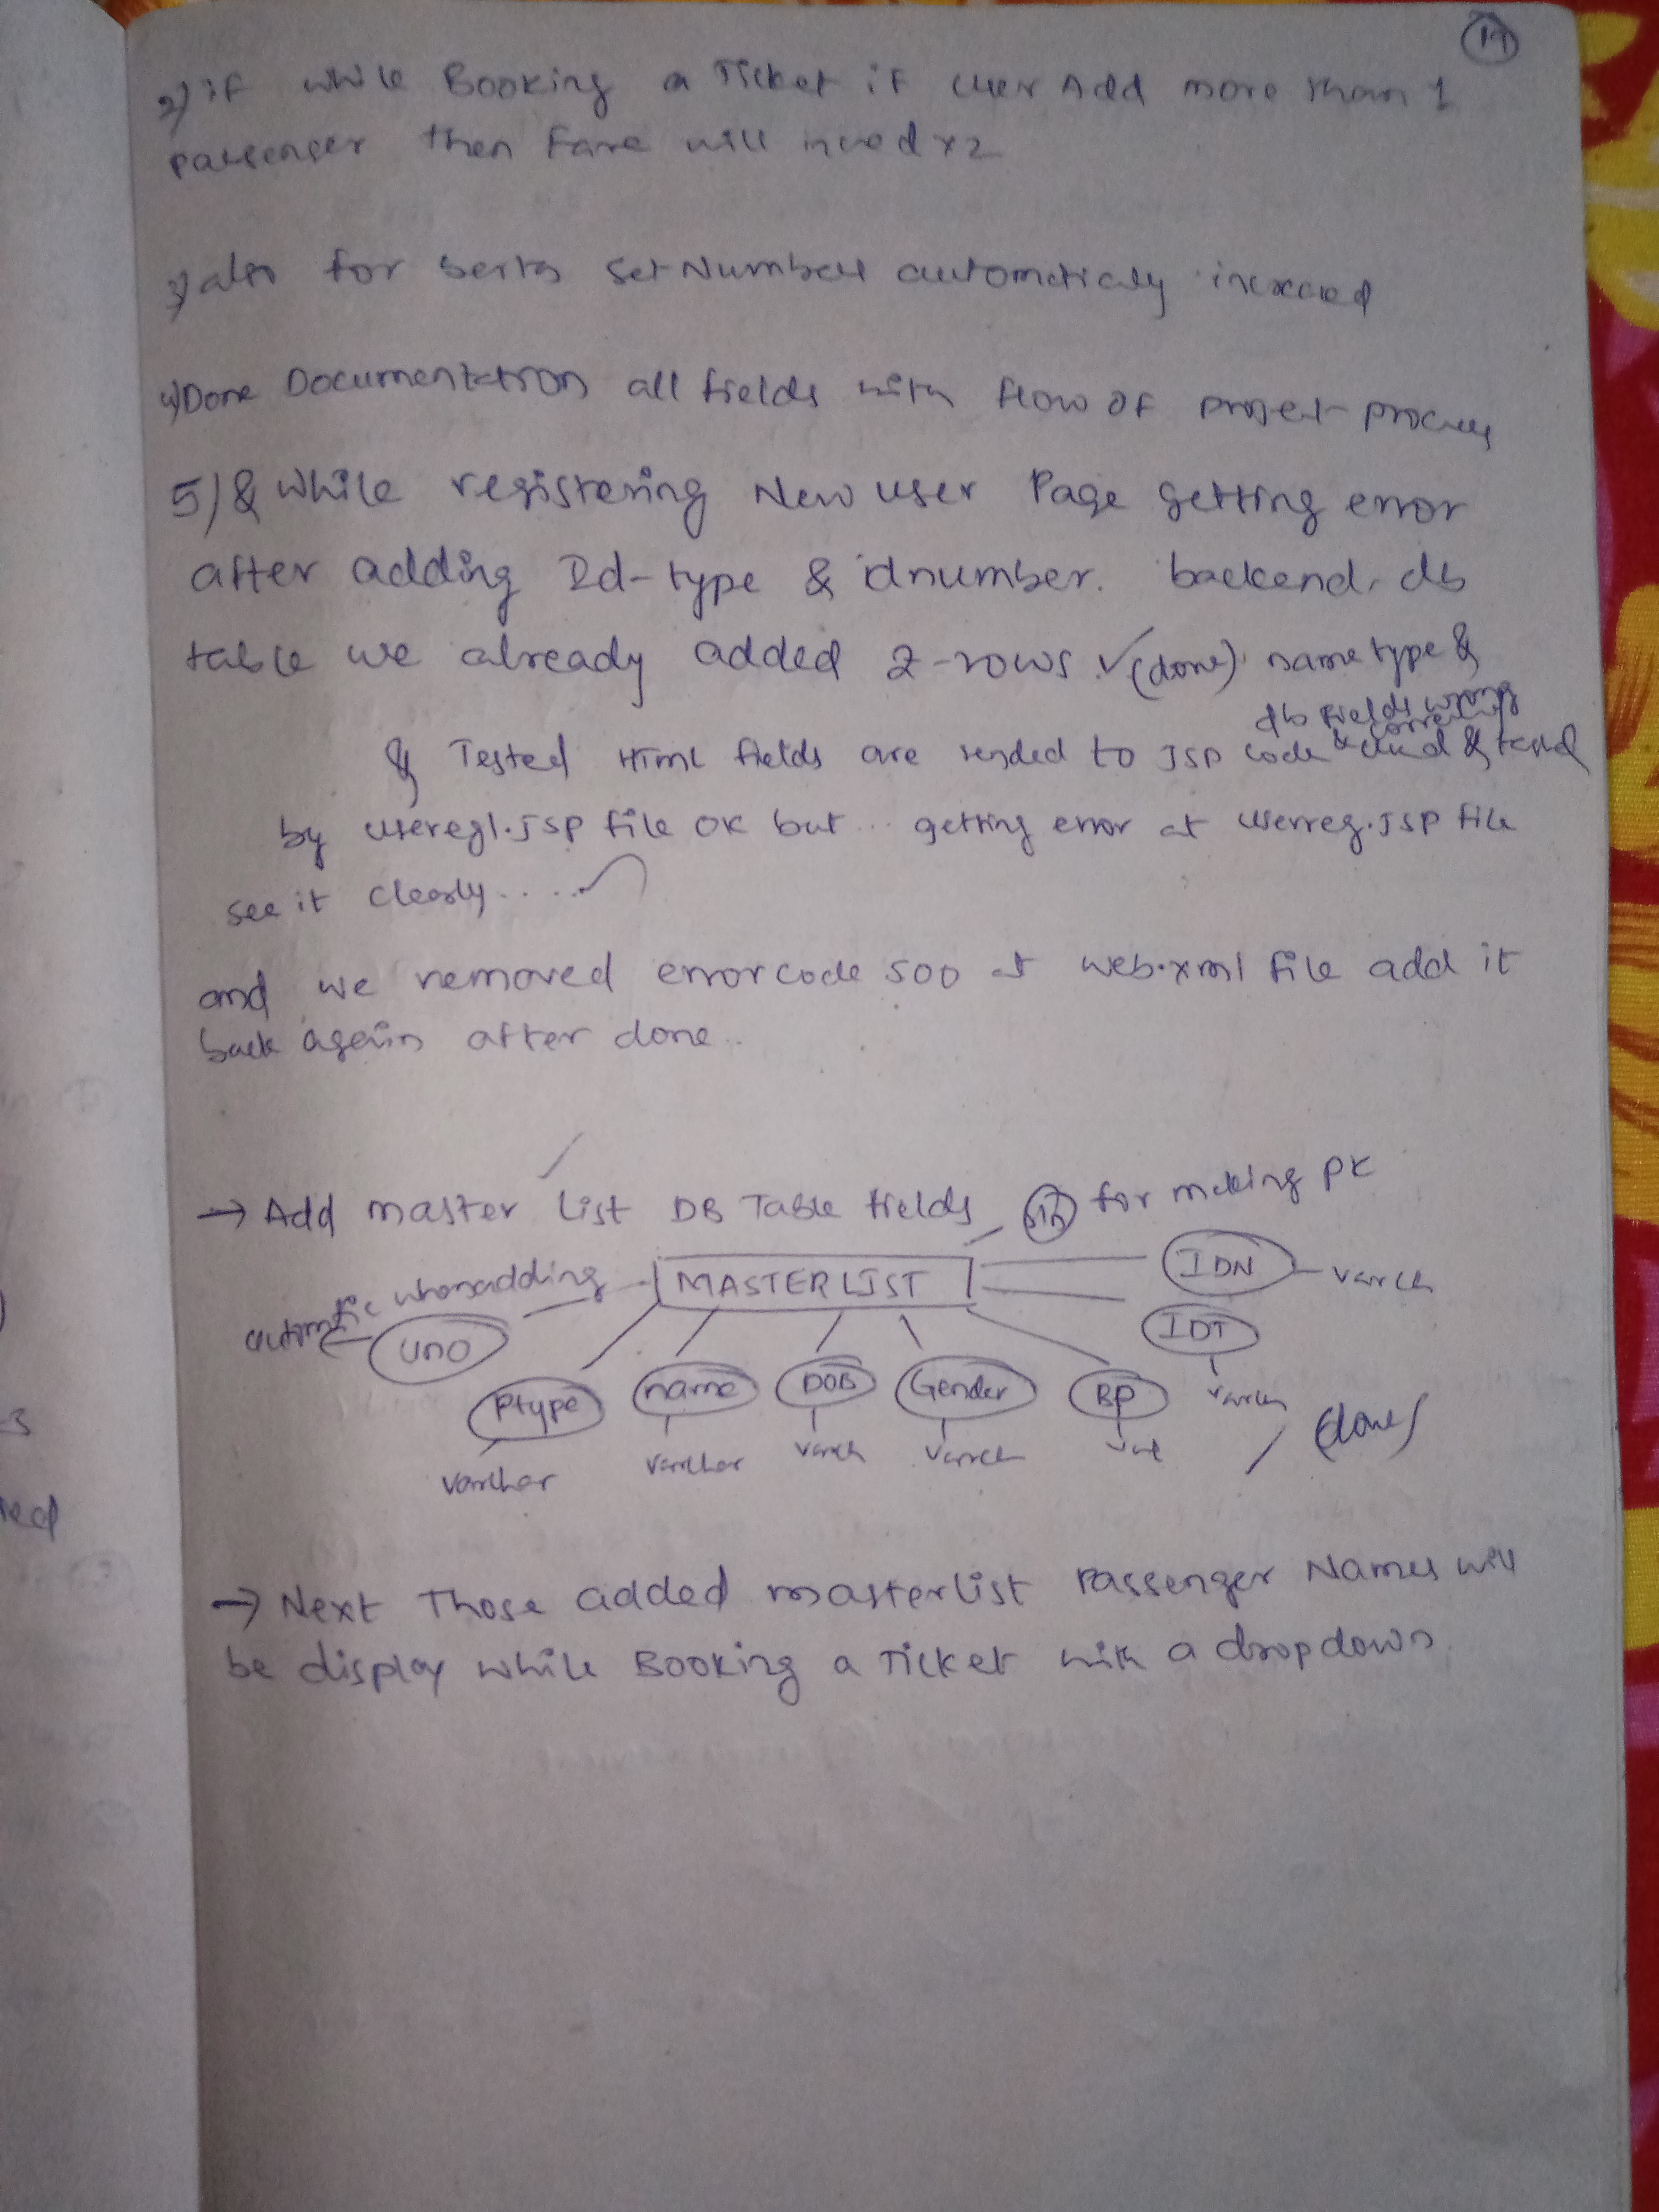 17
2) if while Booking a Ticket if user Add more than 1
passenger then Fare will x2
3) also for berth set Number automaticly
4) Done Documentation all fields with flow of project process
5) & while registering New user Page getting error
after adding Id-type & idnumber. backend db
table we already added 2-rows ✓(done) name type &
db fields wrong
& Tested Html fields are sended to JSP code & tested
by useregl.jsp file ok but... getting error at userreg.JSP file
see it clearly.....
and we removed errorcode 500 at web.xml file add it
back again after done..
→ Add master list DB Table fields for making PK
MASTERLIST
IDN - varch
automatic when adding
UNO
IDT
varch
Ptype name DOB Gender BP
varchar varchar varch varch
(done)
→ Next Those added masterlist Passenger Names will
be display while Booking a Ticket with a dropdown.
3